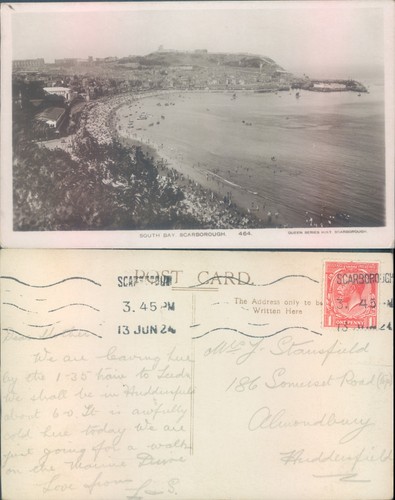 SOUTH BAY, SCARBOROUGH. 464.
QUEEN SERIES SCARBOROUGH.
POST CARD.
The Address only to be
Written Here
SCARBOROUGH
3.45 PM
13 JUN 24
SCARBOROUGH
1 ONE PENNY
Dear Mother
We are leaving here
by the 1-35 to Leeds
We shall be in Huddersfield
about 6-0. It is awfully
cold here today we are
just going for a walk
on the Marine Drive
Love from L. S.
Mrs J. Stansfield
186 Somerset Road
Almondbury
Huddersfield